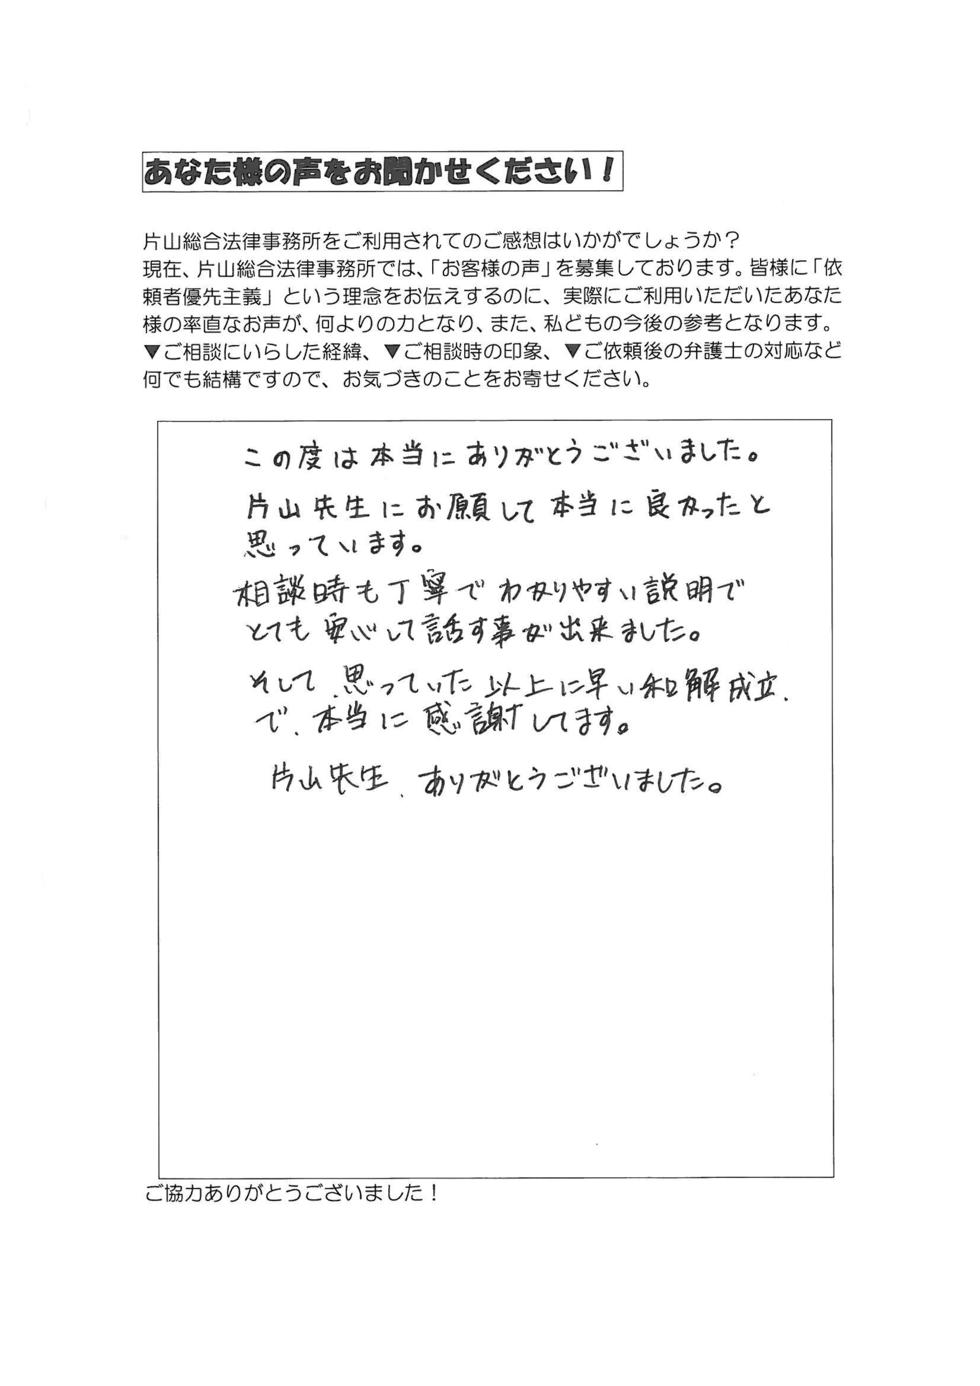 あなた様の声をお聞かせください！
片山総合法律事務所をご利用されてのご感想はいかがでしょうか？
現在、片山総合法律事務所では、「お客様の声」を募集しております。皆様に「依
頼者優先主義」という理念をお伝えするのに、実際にご利用いただいたあなた
様の率直なお声が、何よりの力となり、また、私どもの今後の参考となります。
▼ご相談にいらした経緯、▼ご相談時の印象、▼ご依頼後の弁護士の対応など
何でも結構ですので、お気づきのことをお寄せください。
この度は本当にありがとうございました。
片山先生にお願して本当に良かったと
思っています。
相談時も丁寧でわかりやすい説明で
とても安心して話す事が出来ました。
そして、思っていた以上に早い和解成立
で、本当に感謝してます。
片山先生、ありがとうございました。
ご協力ありがとうございました！